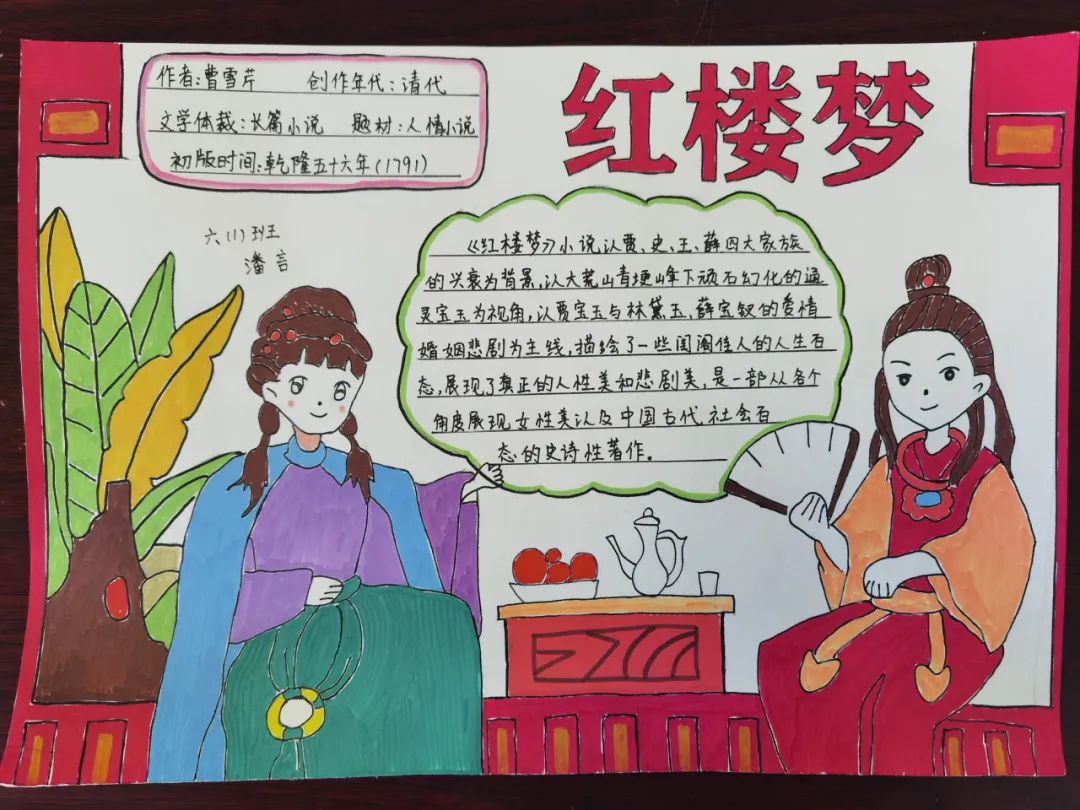 作者:曹雪芹 创作年代:清代
文学体裁:长篇小说 题材:人情小说
初版时间:乾隆五十六年(1791)
红楼梦
六(1)班
潘言
《红楼梦》小说以贾、史、王、薛四大家族
的兴衰为背景,以大荒山青埂峰下顽石幻化的通
灵宝玉为视角,以贾宝玉与林黛玉、薛宝钗的爱情
婚姻悲剧为主线,描绘了一些闺阁佳人的人生百
态,展现了真正的人性美和悲剧美,是一部从各个
角度展现女性美以及中国古代社会百
态的史诗性著作。